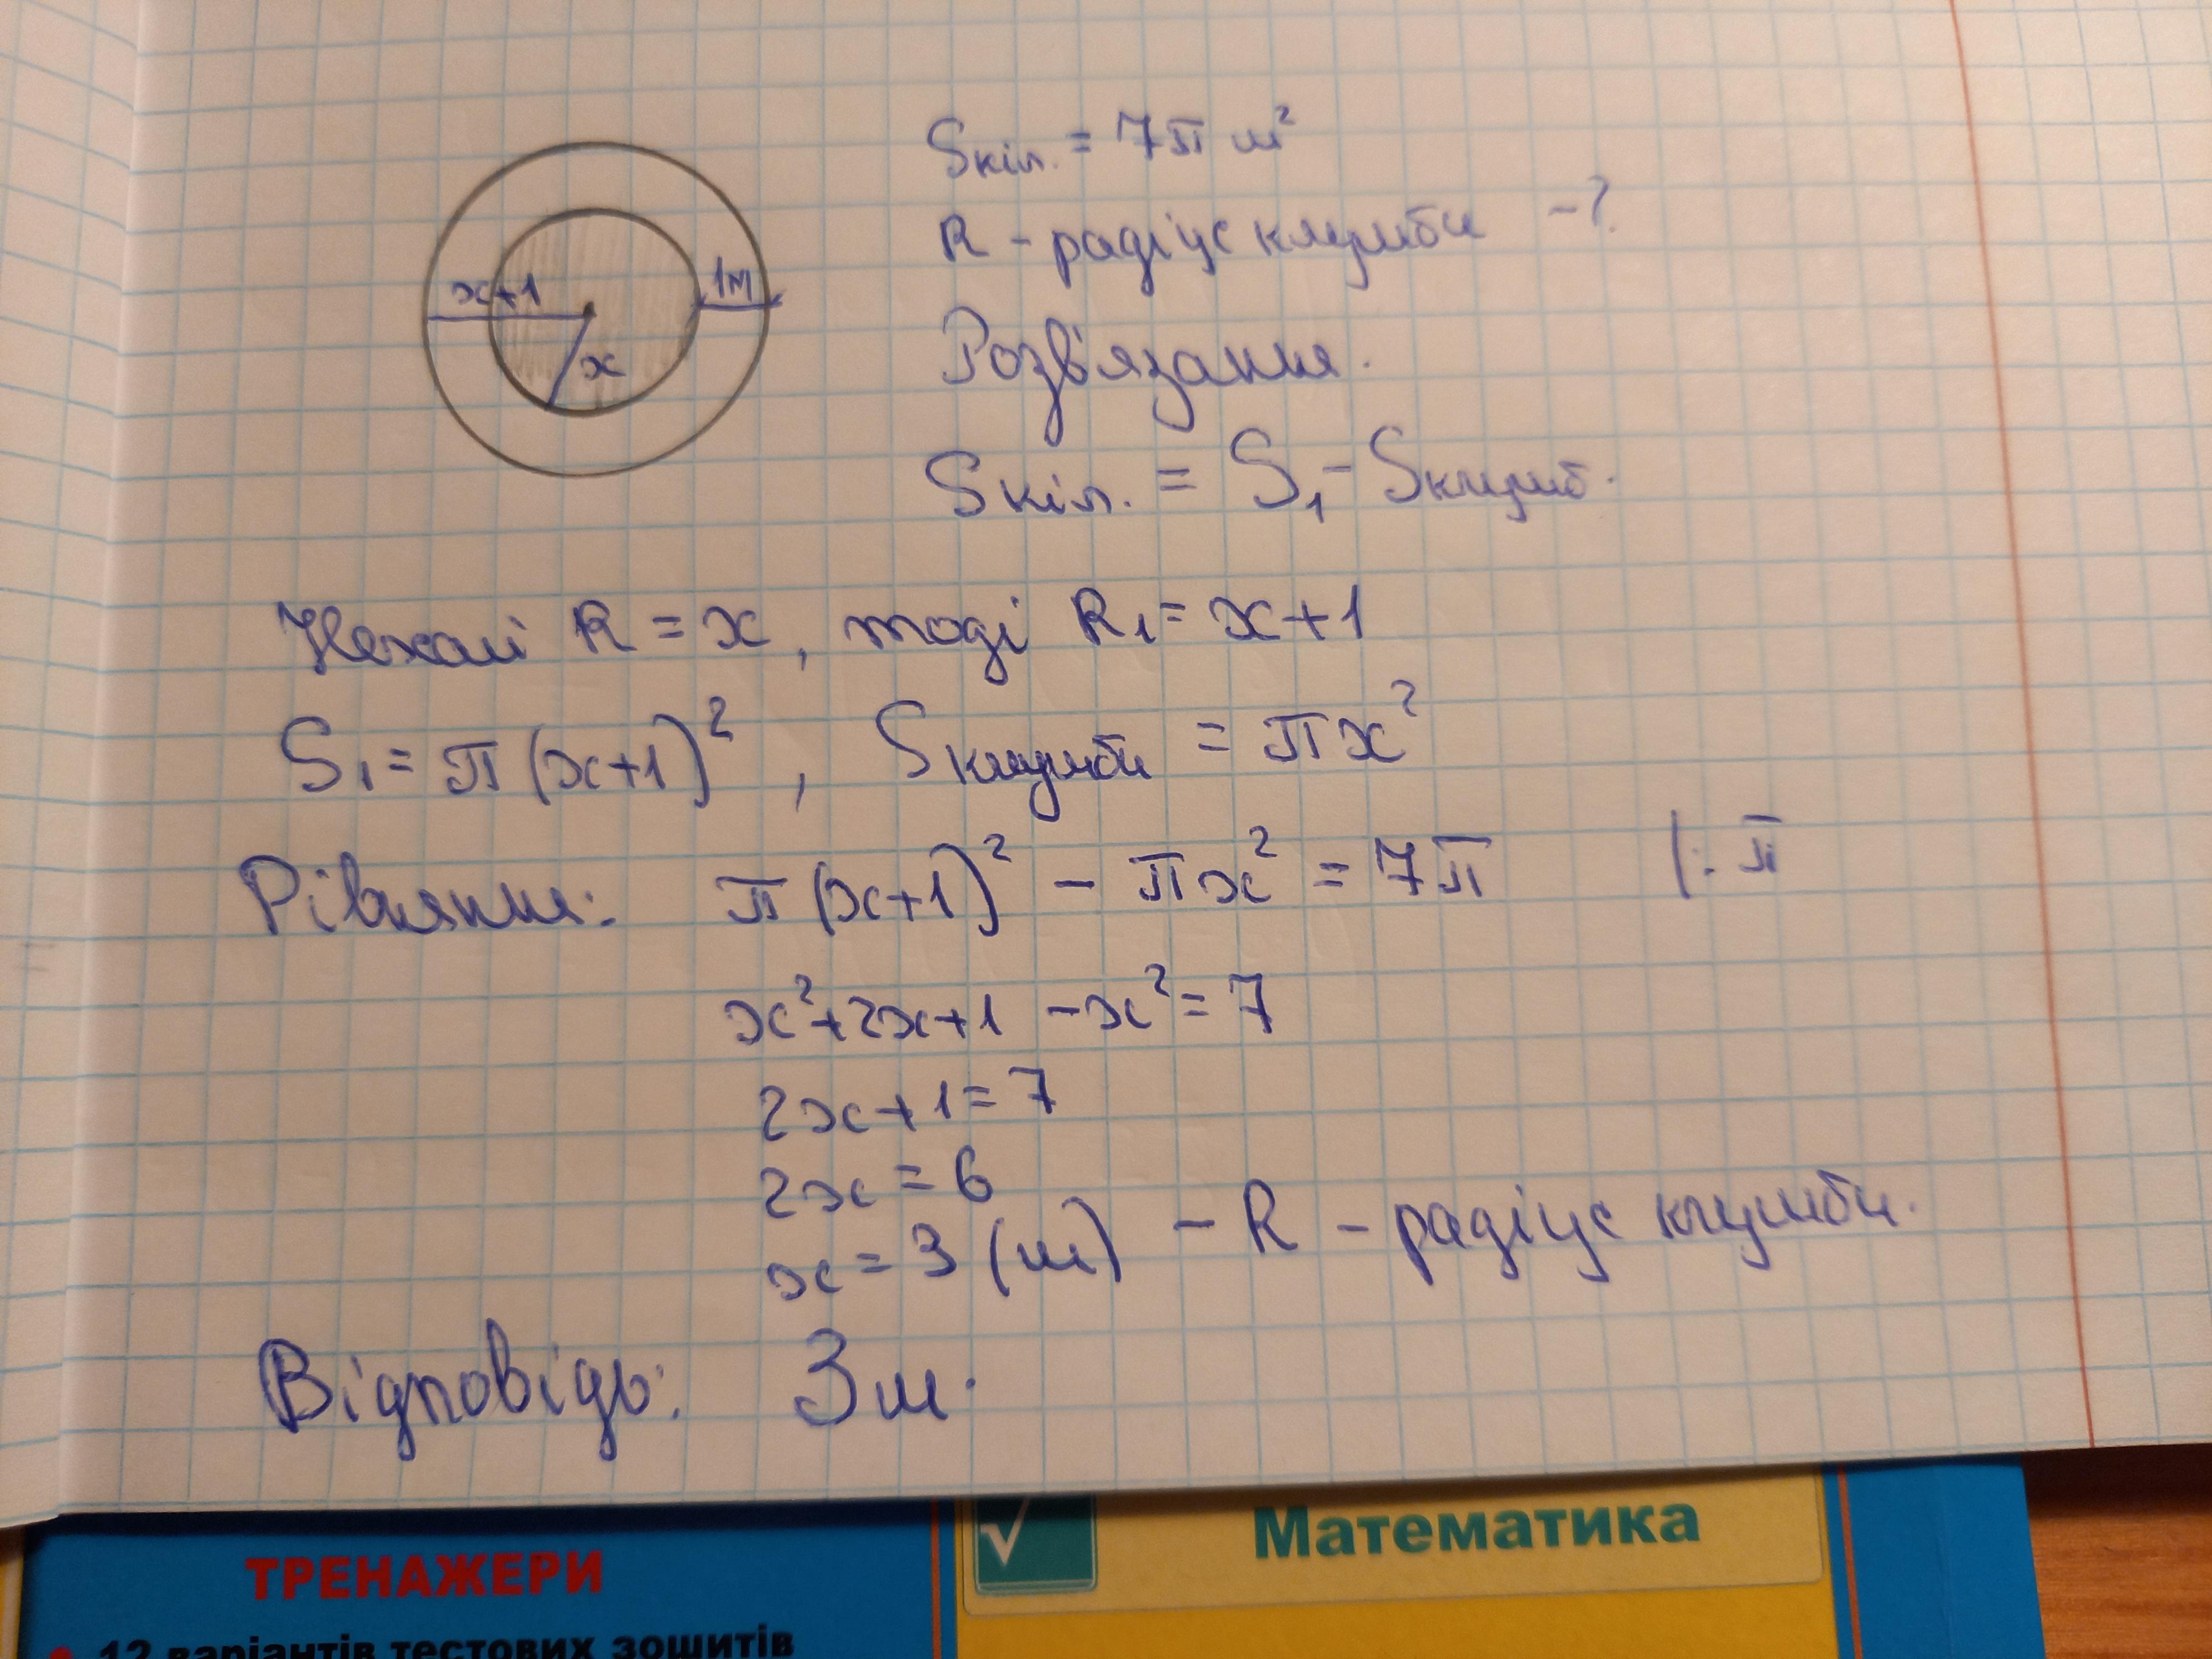 Sкіл. = 7π м²
R - радіус клумби -?
x+1
1м
x
Розв'язання.
Sкіл. = S₁ - Sклумб.
Нехай R = x, тоді R₁ = x+1
S₁ = π(x+1)², Sклумби = πx²
Рівняння: π(x+1)² - πx² = 7π |: π
x²+2x+1 -x² = 7
2x+1 = 7
2x = 6
x = 3 (м) - R - радіус клумби.
Відповідь: 3 м.
Математика
ТРЕНАЖЕРИ
12 варіантів тестових зошитів